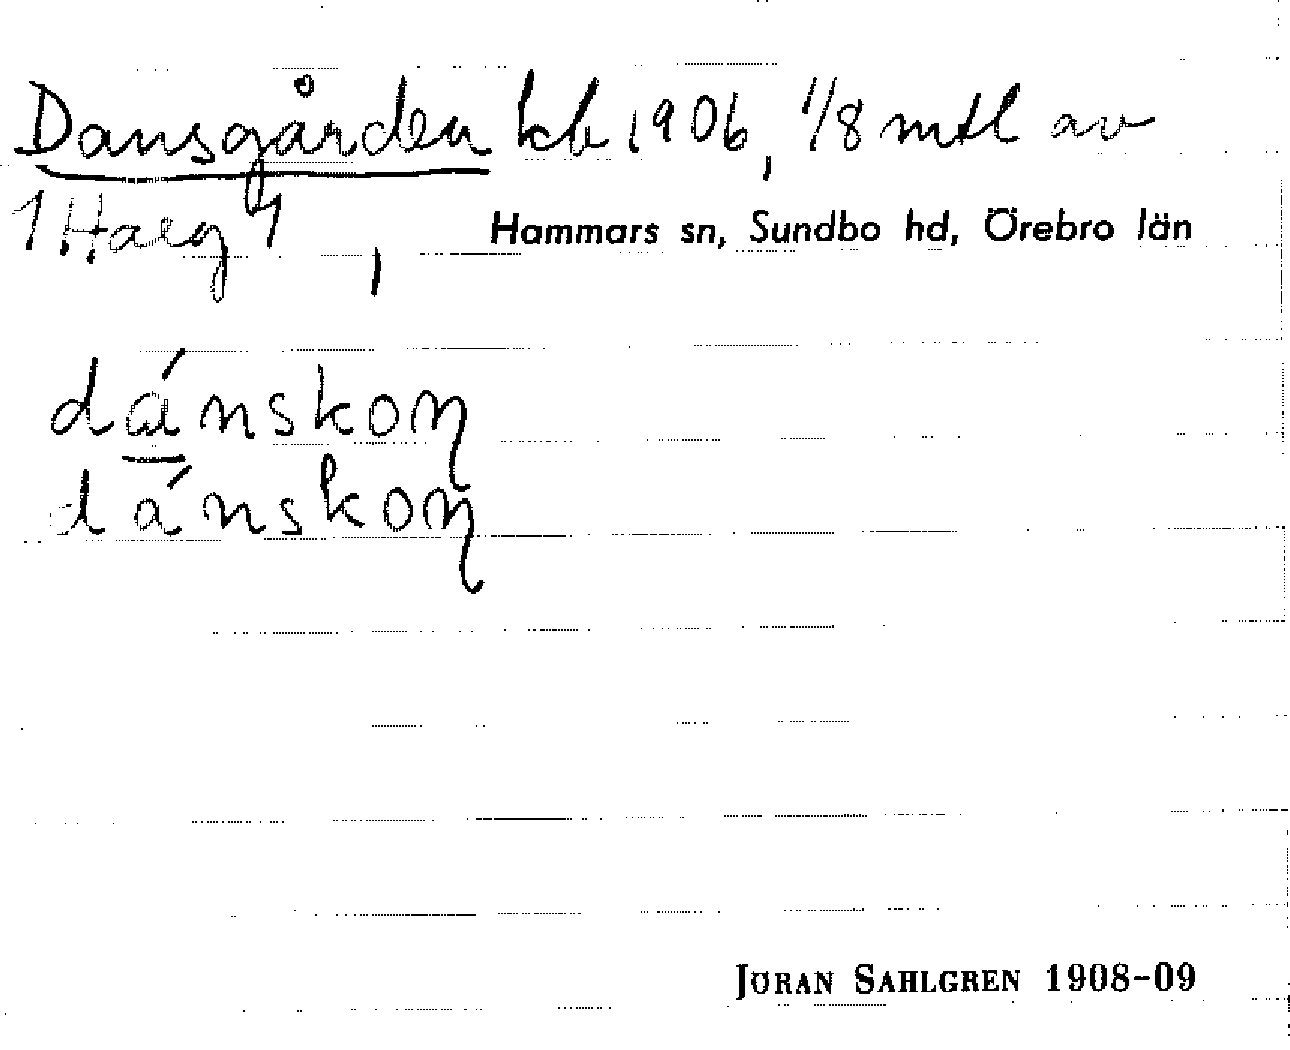 Dansgården kb 1906, 1/8 mtl av
1 Haeg 4, Hammars sn, Sundbo hd, Örebro län
dánskoɳ
dánskoɳ
JÖRAN SAHLGREN 1908-09